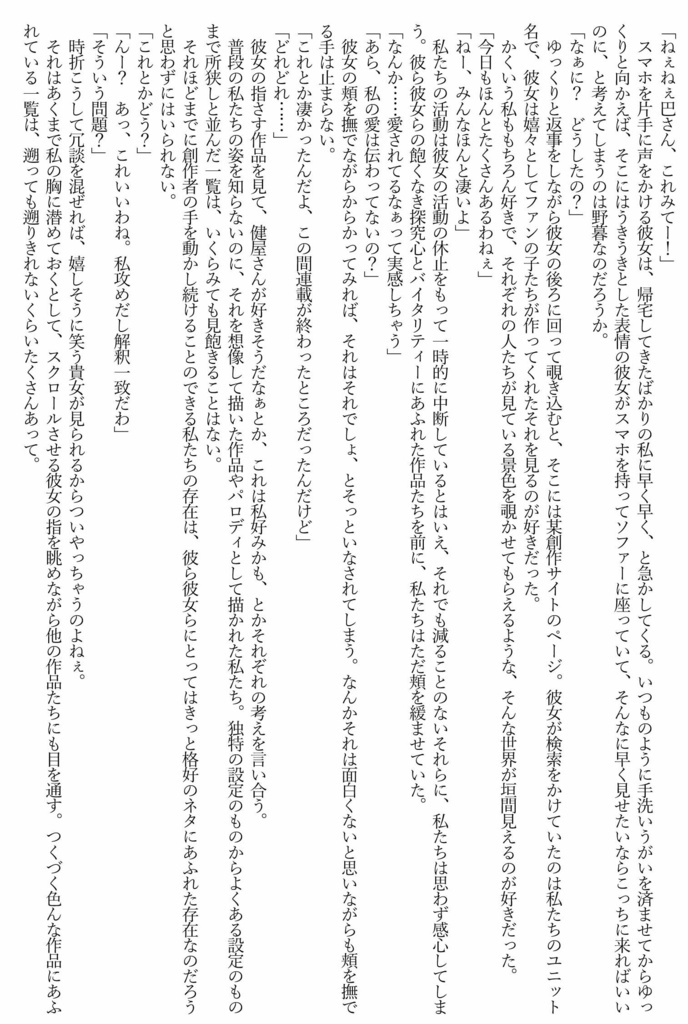 「ねぇねぇ巴さん、これみてー！」
　スマホを片手に声をかける彼女は、帰宅してきたばかりの私に早く早く、と急かしてくる。いつものように手洗いうがいを済ませてからゆっ
くりと向かえば、そこにはうきうきとした表情の彼女がスマホを持ってソファーに座っていて、そんなに早く見せたいならこっちに来ればいい
のに、と考えてしまうのは野暮なのだろうか。
「なぁに？　どうしたの？」
　ゆっくりと返事をしながら彼女の後ろに回って覗き込むと、そこには某創作サイトのページ。彼女が検索をかけていたのは私たちのユニット
名で、彼女は嬉々としてファンの子たちが作ってくれたそれを見るのが好きだった。
　かくいう私ももちろん好きで、それぞれの人たちが見ている景色を覗かせてもらえるような、そんな世界が垣間見えるのが好きだった。
「今日もほんとたくさんあるわねぇ」
「ねー、みんなほんと凄いよ」
　私たちの活動は彼女の活動の休止をもって一時的に中断しているとはいえ、それでも減ることのないそれらに、私たちは思わず感心してしま
う。彼ら彼女らの飽くなき探究心とバイタリティーにあふれた作品たちを前に、私たちはただ頬を緩ませていた。
「なんか……愛されてるなぁって実感しちゃう」
「あら、私の愛は伝わってないの？」
　彼女の頬を撫でながらからかってみれば、それはそれでしょ、とそっといなされてしまう。なんかそれは面白くないと思いながらも頬を撫で
る手は止まらない。
「これとか凄かったんだよ、この間連載が終わったところだったんだけど」
「どれどれ……」
　彼女の指さす作品を見て、健屋さんが好きそうだなぁとか、これは私好みかも、とかそれぞれの考えを言い合う。
　普段の私たちの姿を知らないのに、それを想像して描いた作品やパロディとして描かれた私たち。独特の設定のものからよくある設定のもの
まで所狭しと並んだ一覧は、いくらみても見飽きることはない。
　それほどまでに創作者の手を動かし続けることのできる私たちの存在は、彼ら彼女らにとってはきっと格好のネタにあふれた存在なのだろう
と思わずにはいられない。
「これとかどう？」
「んー？　あっ、これいいわね。私攻めだし解釈一致だわ」
「そういう問題？」
　時折こうして冗談を混ぜれば、嬉しそうに笑う貴女が見られるからついやっちゃうのよねぇ。
　それはあくまで私の胸に潜めておくとして、スクロールさせる彼女の指を眺めながら他の作品たちにも目を通す。つくづく色んな作品にあふ
れている一覧は、遡っても遡りきれないくらいたくさんあって。